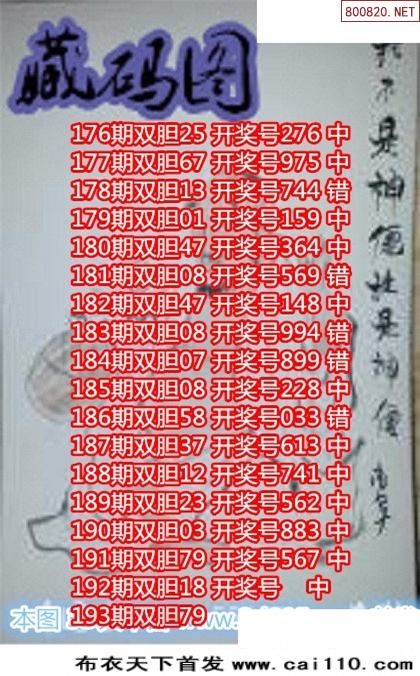 800820.NET
藏码图
176期双胆25 开奖号276 中
177期双胆67 开奖号975 中
178期双胆13 开奖号744 错
179期双胆01 开奖号159 中
180期双胆47 开奖号364 中
181期双胆08 开奖号569 错
182期双胆47 开奖号148 中
183期双胆08 开奖号994 错
184期双胆07 开奖号899 错
185期双胆08 开奖号228 中
186期双胆58 开奖号033 错
187期双胆37 开奖号613 中
188期双胆12 开奖号741 中
189期双胆23 开奖号562 中
190期双胆03 开奖号883 中
191期双胆79 开奖号567 中
192期双胆18 开奖号 中
193期双胆79
本图
不是神仙 是神仙
布衣天下首发 www.cai110.com